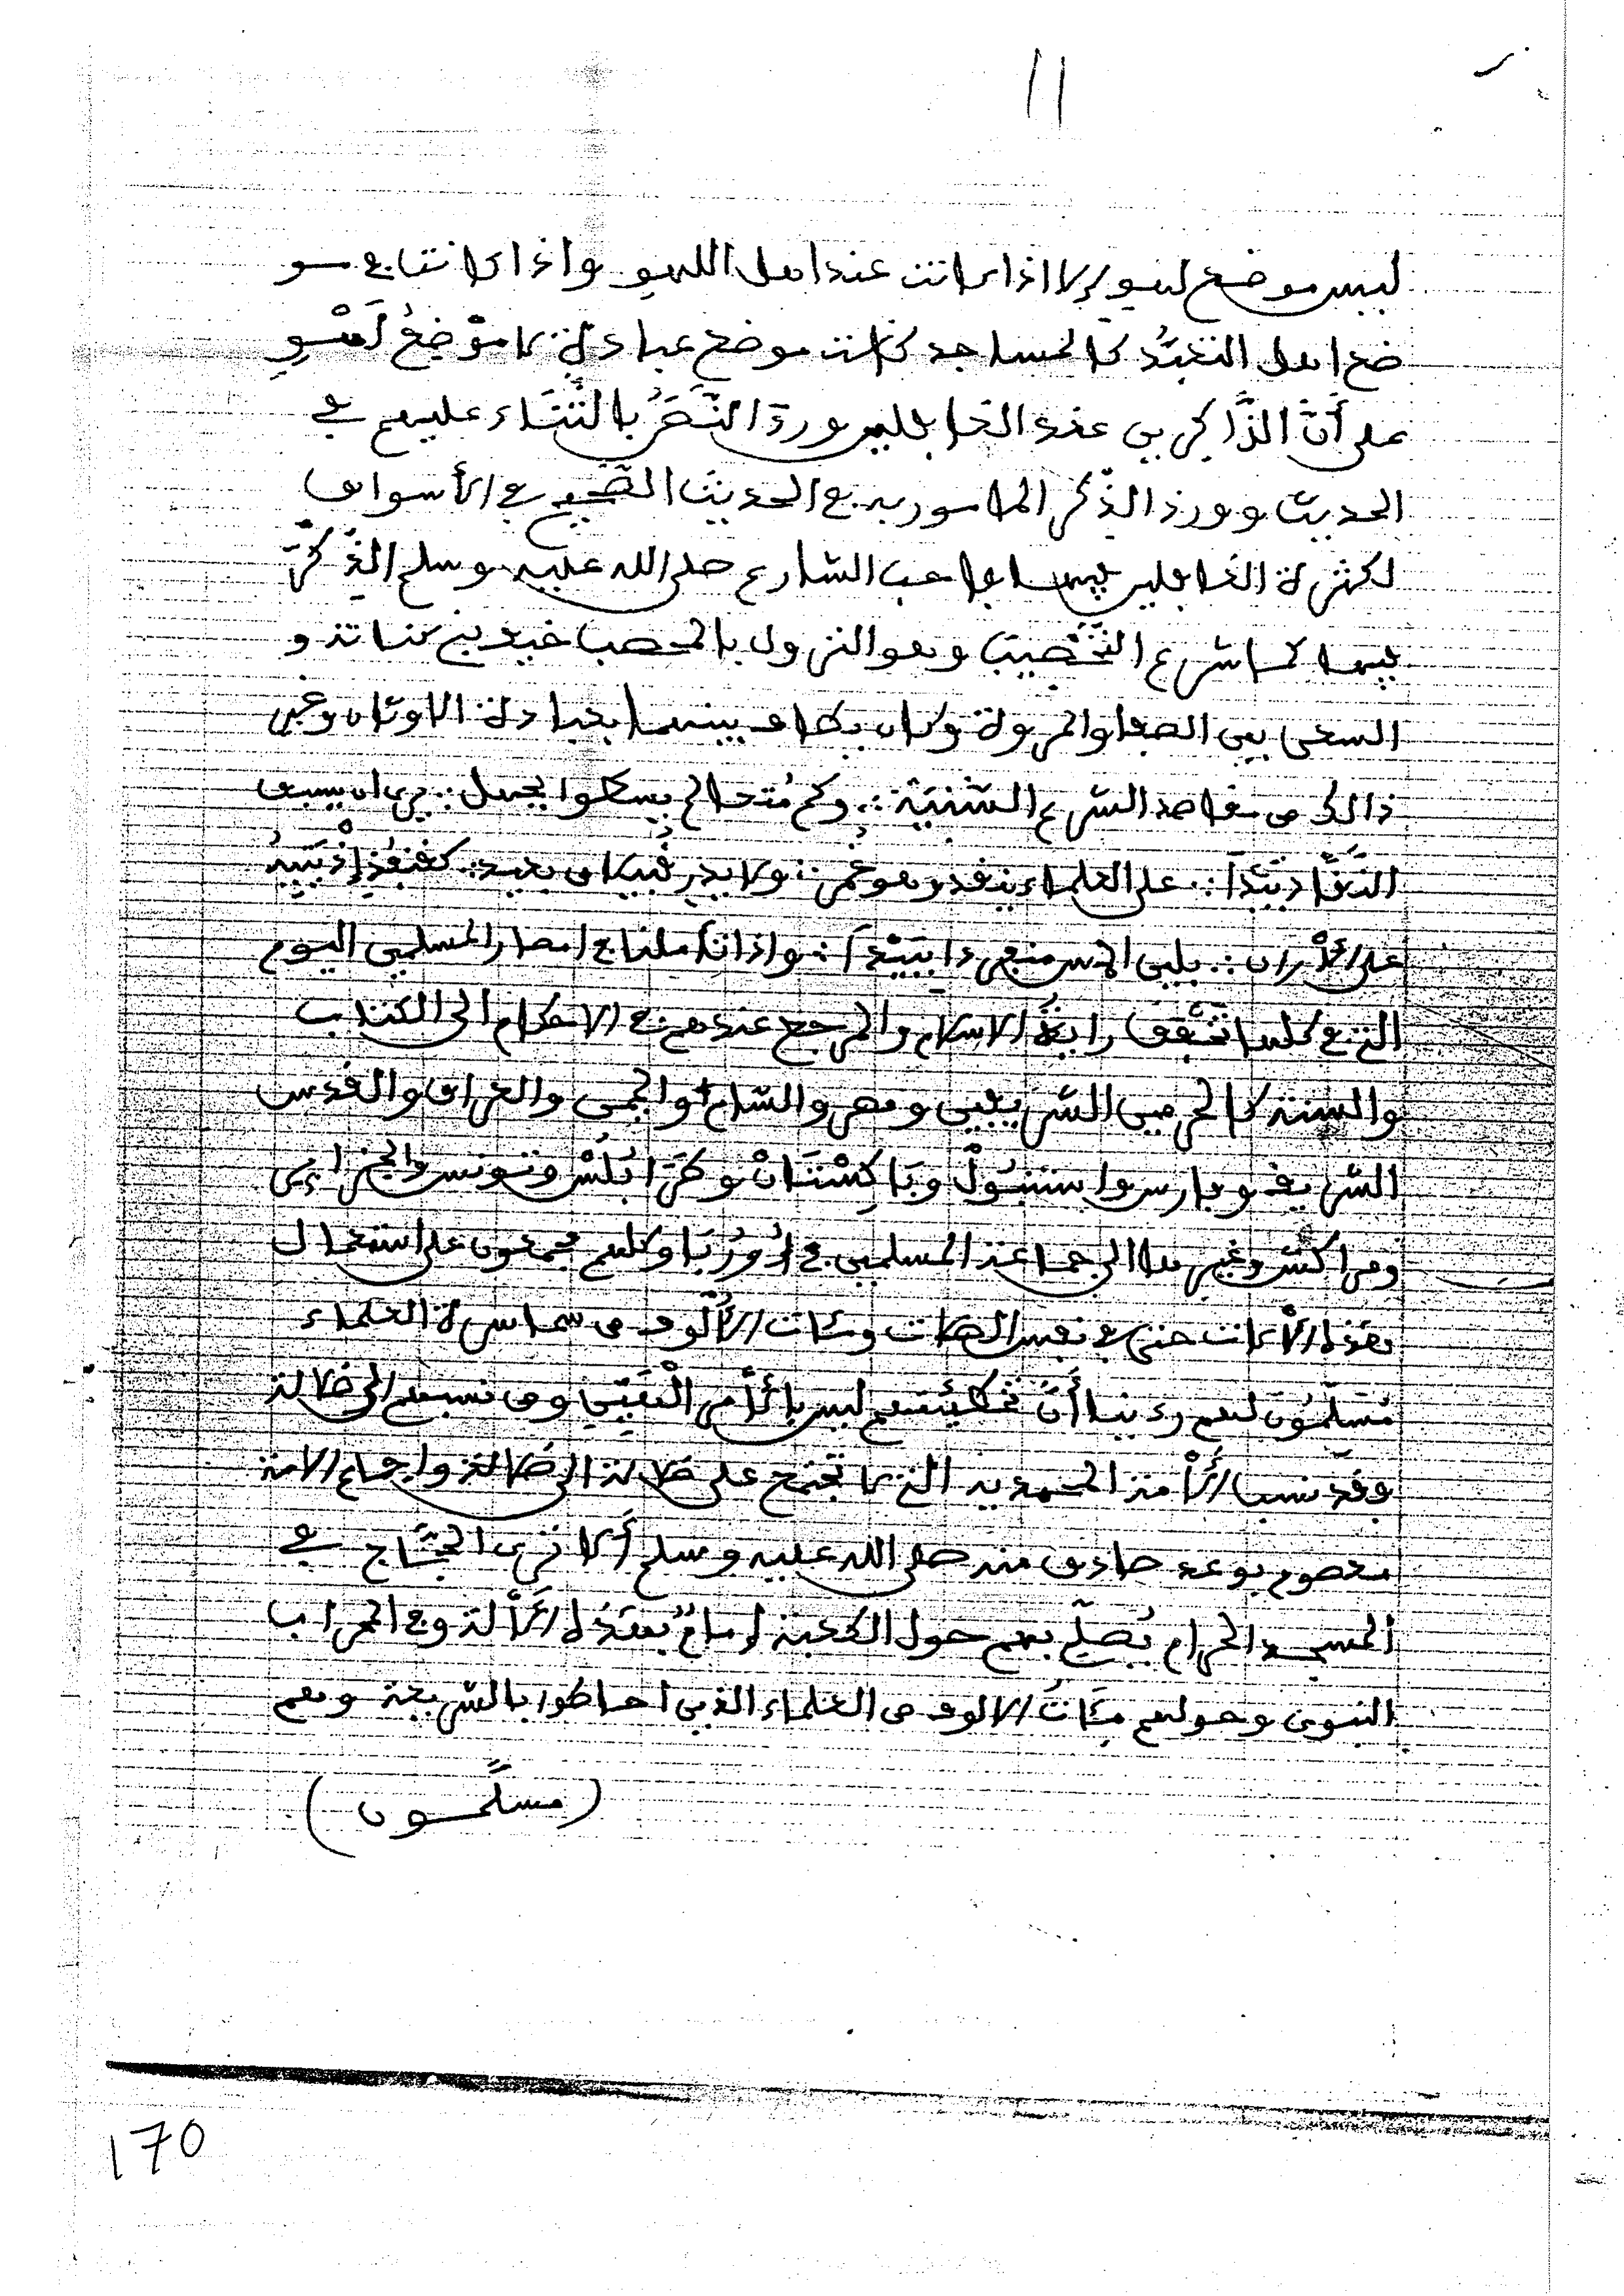 11
ليس موضع لهو إلا اذا كانت عند اهل اللهو واذا كانت في مو
ضع اهل التعبُّد كالمساجد كانت موضع عبادة لا موْضِعُ لَهْوِ
على أنَّ الذَّاكرين عند الغافلين ورد النَّصُّ بالثَّنَاء عليهم في
الحديث وورد الذّكر المامور به في الحديث الصَّحيح في الأسواق
لكثرة الغافلين فيها فاحب الشارع صلى الله عليه وسلم الذّكرَ
فيها كما شرع التَّحْصِيبَ وهو النزول بالمحصب خيف بني كنانة و
السعي بين الصفا والمروة وكان يطاف بينهما بعبادة الاوثان وغير
ذالك من مقاصد الشرع السَّنيَّة ∴ وكم مُتعالم يسطوا بجهل ∴ يرى ان يسبق
النُّقَّادَ نَقْدًا ∴ على العلماء ينقد وهو غمر ∴ ولا يدر قبيلا من بعيد ∴ كقنفُذٍ إذْ
على الأقران ∴ يلين المس منه
واذا تأملنا في امصار المسلمين اليوم
التي كلها تخْفِقُ رايَةُ الاسلام والمرجع عندهم في الاحكام الى الكتاب
والسنة كالحرمين الشريفين ومصر والشام واليمن والعراق والقدس
الشريف وفارس واستنبُولْ وبَاكِسْتَانْ وطرَابُلُسْ وتونس والجزائر
ومراكش وغيرها الى جماعة المسلمين في أُورُبَا وكلهم مجمعون على استعمال
هَذه الآلات حتى في نفس الصلات ومئات الأُلُوف من سماسرة العلماء
مُسَلِّمُون لهم رءينا أنَّ تخطيئتهم ليس بالأمر الْهَيِّنِ ومن نسبهم الى ضلالة
فقد نسب الأمة المحمدية التي لا تجتمع على ضلالة الى ضلالة واجماع الامة
معصوم بوعد صادق منه صلى الله عليه وسلم أَلا ترى الحجَّاج في
المسجد الحرام يُصلّي بهم حول الكعبة إمامٌ بهَذه الآلة وفي المحراب
النبوي وحولهم مئَاتُ الالوف من العلماء الذين احاطوا بالشريعة وهم
(مسلّمون)
170